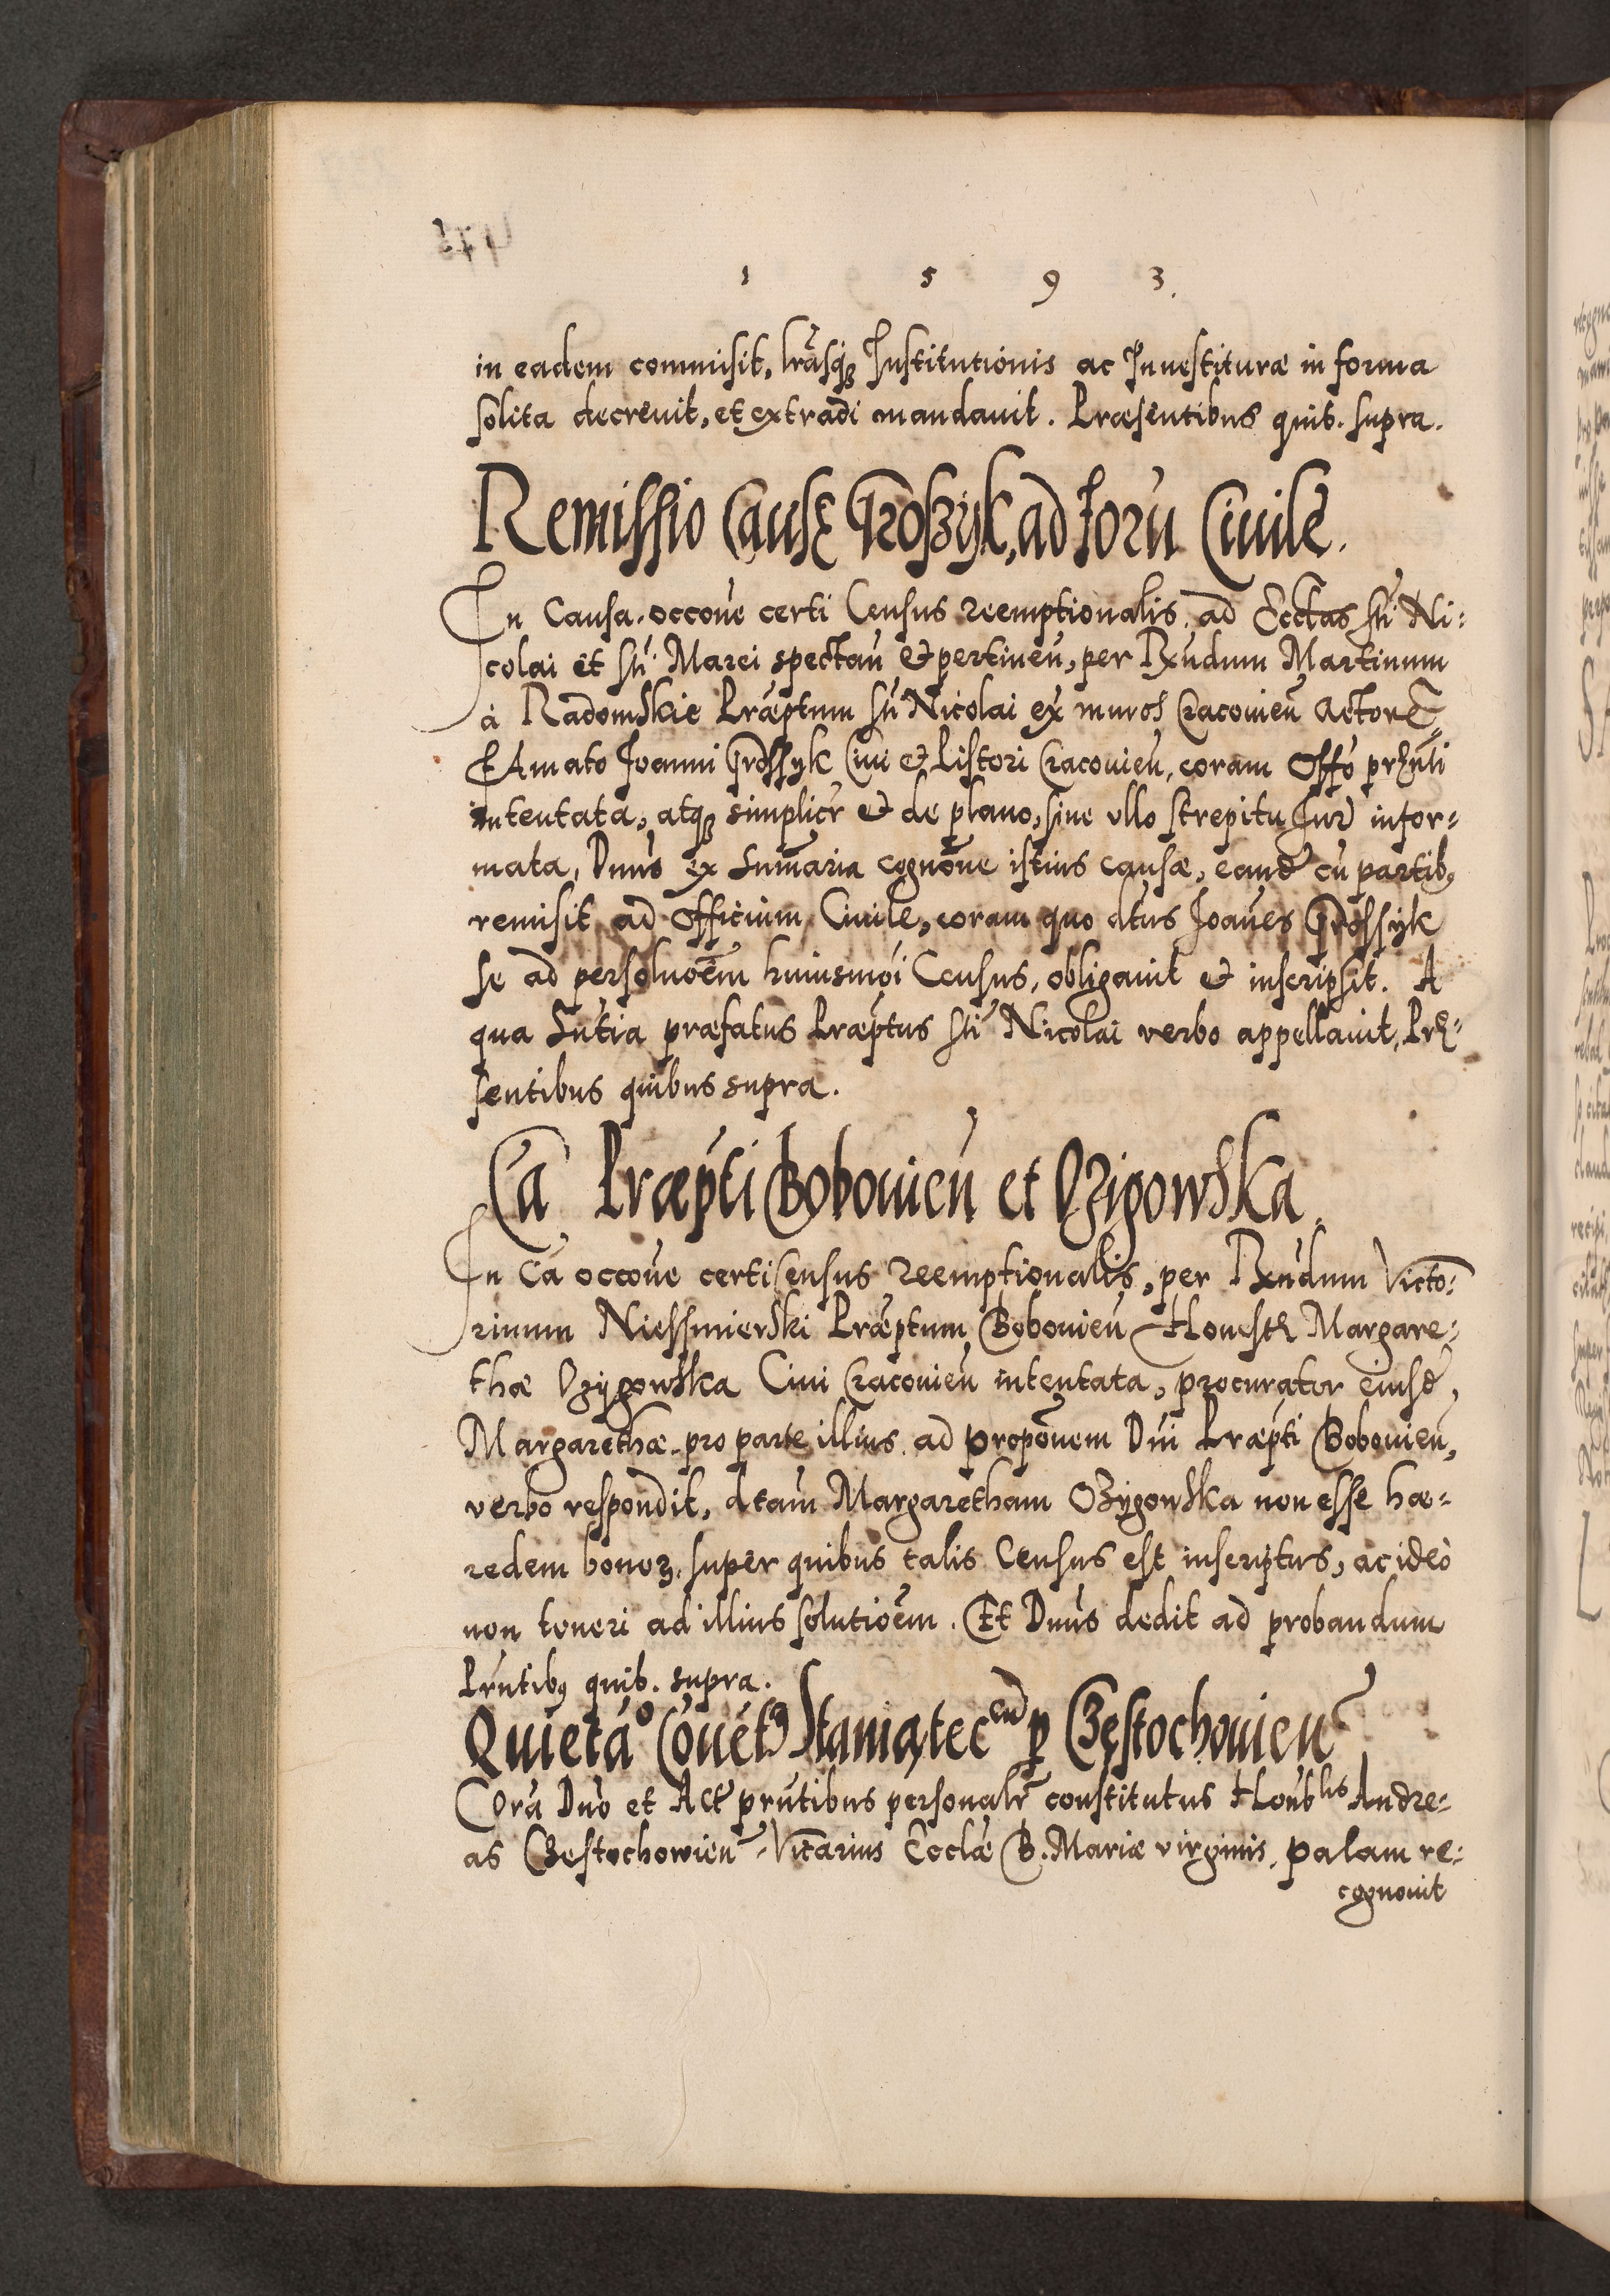 1 5 9 3.
in eadem commisit, lr̃asq; Institutionis ac Inuestituræ in forma
solita decreuit, et extradi mandauit. Præsentibus quib. supra.
Remissio Causę Groszyk, ad Forũ Ciuile.
In Causa occõne certi Census reemptionalis, ad Ecctas Sti Ni-
colai et Sti Marci spectañ et pertineñ, per Rxñdum Martinum
à Radomskie Præptum Sti Nicolai ex muros Cracouień Actorē
Famato Joanni Grossyk Ciui et Pistori Cracouień, coram Offo prȩñti
intentata, atq; simplicr̃ et de plano, sine vllo strepitu Jur̃ infor-
mata, Dnũs ex summaria cognõne istius causæ, eandē cũ partibꝫ
remisit ad Officium Ciuile, coram quo dtus Joañes Grossyk
se ad persoluõem huiusmõi Census, obligauit et inscripsit. A
qua Sñtia præfatus Præptus Sti Nicolai verbo appellauit, Prę-
sentibus quibus supra.
Cã Præpti Bobouień et Ozigowska.
In Cã occõne certi Census reemptionalis, per Rxñdum Victo-
rinum Niessmierski Præptum Bobouień Honestę Margare-
thæ Ozygowska Ciui Cracouień intentata, procurator eiusdē,
Margarethæ pro parte illius ad propõnem Dñi Præpti Bobouień,
verbo respondit, dtam Margaretham Ozygowska non esse hæ-
redem bonoꝝ, super quibus talis Census est inscriptus, ac ideò
non teneri ad illius solutiõem. Et Dnũs dedit ad probandum
Prñtibꝫ quib. supra.
Quietaõ Cõuetꝯ Staniątecen̄ p Częstochouień
Corã Dño et Actȩ prñtibus personalr̃ constitutus Honblis Andre-
as Czestochowień Vicarius Ecclæ B. Mariæ virginis, palam re-
cognouit